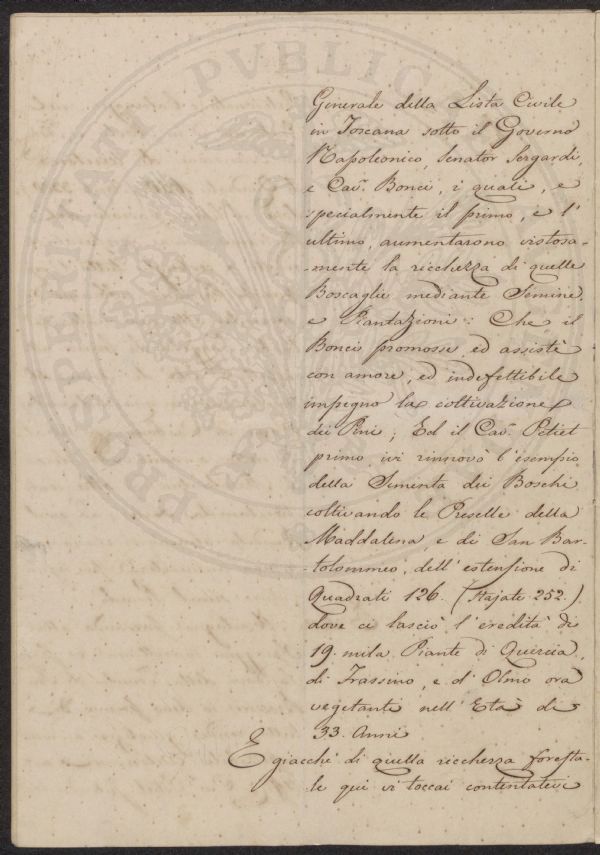 Generale della Lista Civile
in Toscana sotto il Governo
Napoleonico, Senator Sergardi,
e Cav.r Bonci, i quali, e
specialmente il primo, e l'
ultimo, aumentarono vistosa-
-mente la ricchezza di quelle
Boscaglie mediante Semine,
e Piantazioni: Che il
Bonci promosse, ed assistè
con amore, ed indefettibile
impegno la coltivazione
dei Pini; Ed il Cav.r Petiet
primo ivi rinnovò l'esempio
della Sementa dei Boschi
coltivando le Preselle della
Maddalena, e di San Bar-
-tolommeo, dell'estensione di
Quadrati 126. (Stajate 252.)
dove ci lasciò l'eredità di
19. mila Piante di Quercia,
di Frassino, e d'Olmo ora
vegetanti nell'Età di
33. Anni
E giacchè di quella ricchezza foresta-
-le qui vi toccai contentatevi